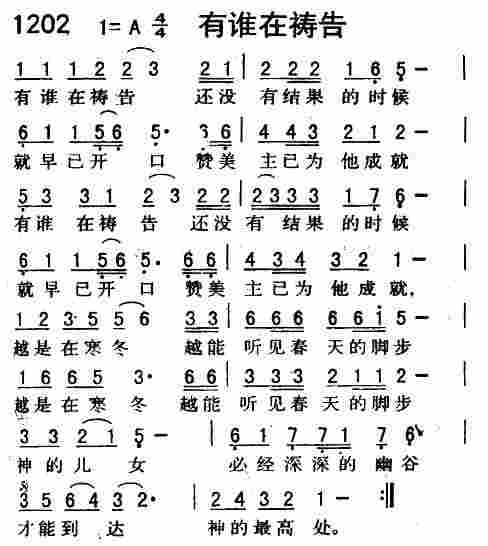 1202 1=A 4/4 有谁在祷告
1 1 1 2 2 3 2 1 | 2 2 2 2 1 6 5 — |
有谁在祷告 还没 有结果 的时候
6 1 1 5 6 5· 3 6 | 4 4 3 2 1 2 — |
就早已开 口 赞美 主已为 他成就
5 3 3 1 2 3 2 2 | 2 3 3 3 1 7 6 — |
有谁 在祷 告 还没 有 结果 的时候
6 1 1 5 6 5· 6 6 | 6 1 3 4 3 2 1 — |
就早已开 口 赞美 主已为 他成就,
1 2 3 5 5 6 3 3 | 6 6 6 6 6 i 5 — |
越是在寒冬 越能 听见春 天的脚步
1 6 6 5 3· 6 5 | 3 3 3 2 1 1 2 — |
越是在寒 冬 越能 听见春 天的脚步
3 3 2 1 5 — | 6 1 7 7 1 7 6 |
神的儿 女 必经深深的 幽谷
3 5 6 4 3 2· | 2 4 3 2 1 — :||
才能到 达 神的最高 处。